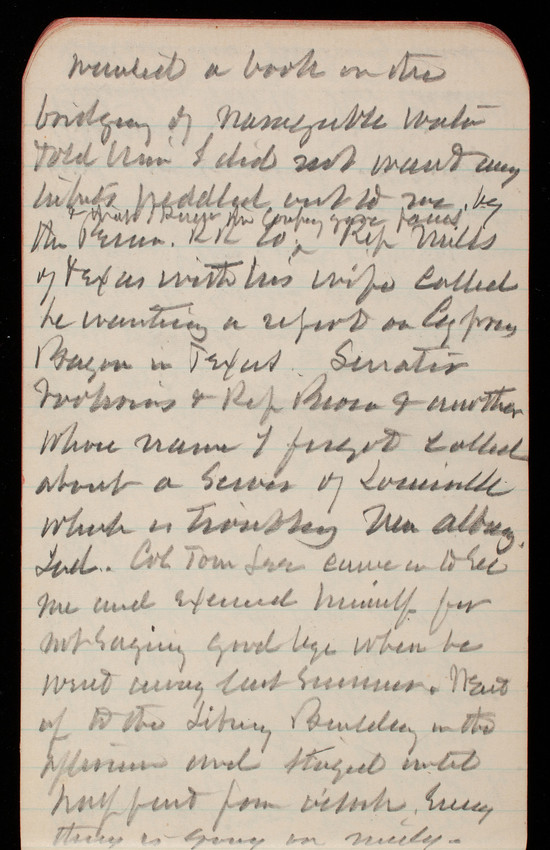 wanted a book on the
bridging of navigable water
told him I did not want any
tribute peddled out to me, by
the Penna. R R Co. Rep Mills
of Texas with his wife called
he wanting a report on Cypress
Bayou in Texas. Senator
& Rep Brown & another
whose name I forgot called
about a Sewer of Louisville
which is troubling New Albany.
Ind.. Col Tom came in to see
me and excused himself for
not saying good bye when he
went away last Summer. Went
up to the Library Building in the
afternoon and stayed until
half past four o'clock. Every
thing is going on nicely.